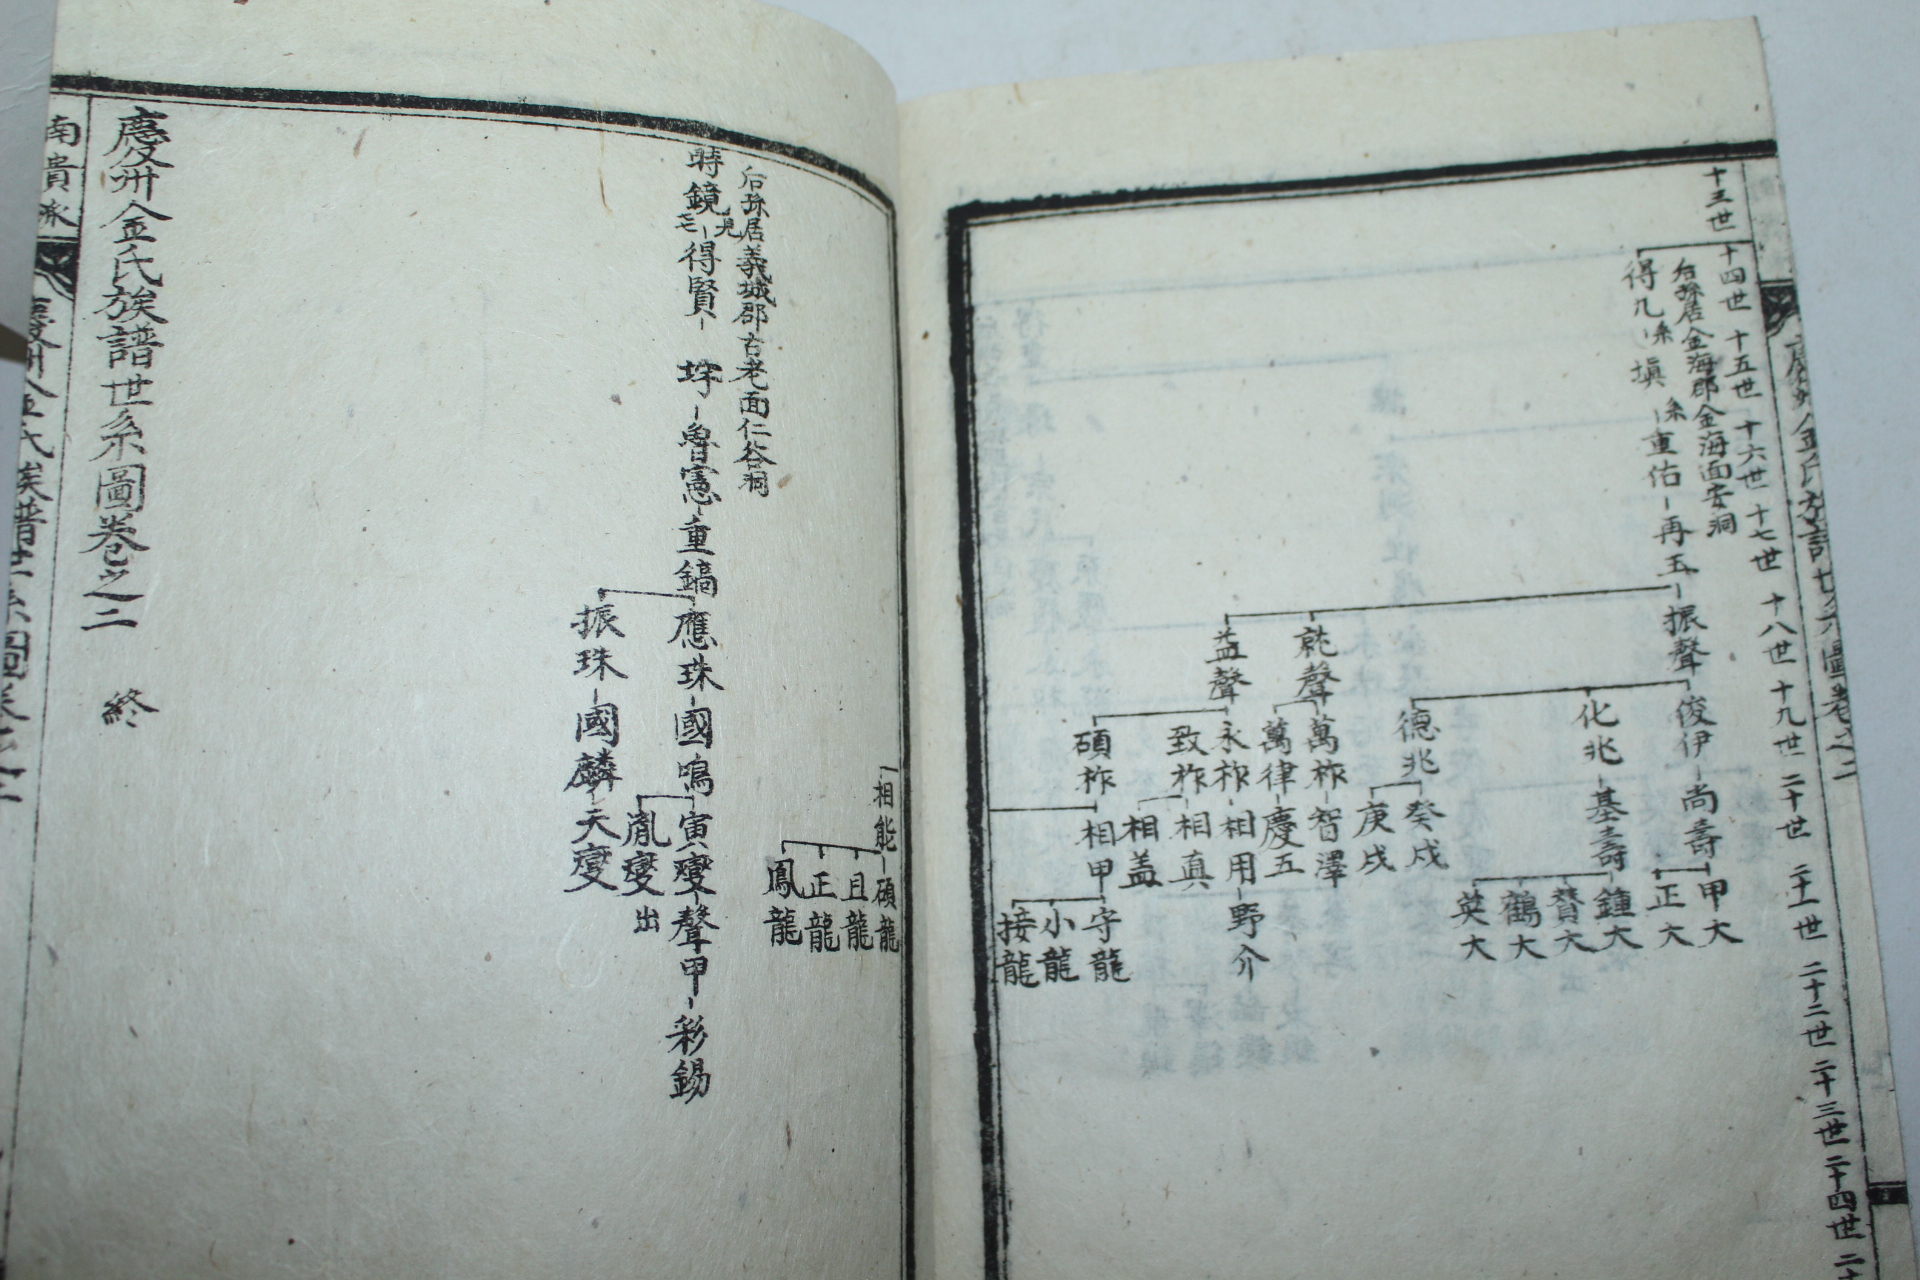 慶州金氏族譜世系圖卷之二
十三世 十四世 十五世 十六世 十七世 十八世 十九世 二十世 二十一世 二十二世 二十三世 二十四世
后孫居金海郡金海面安洞
得九 系 塡 系 重佑 再玉 振聲 俊伊 尚壽 甲大
正大
化兆 基壽 鍾大
贊大
鶴大
英大
德兆 癸戌
庚戌
就聲 萬柞 智澤
萬律 慶五
益聲 永柞 相用 野介
致柞 相真
相盖
碩柞 相甲 守龍
小龍
接龍
相能 碩龍
且龍
正龍
鳳龍
后孫居義城郡古老面仁谷洞
時鏡 見 得賢 垶 魯憲 重鎬 應珠 國鳴 寅燮 聲甲 彩錫
胤燮 出
振珠 國麟 天燮
慶州金氏族譜世系圖卷之二 終
南貴派
慶州金氏族譜世系圖卷之二